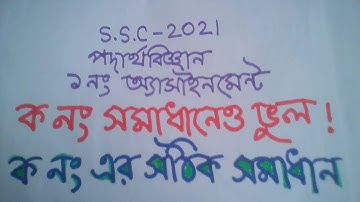 S.S.C-2021
পদার্থবিজ্ঞান
১ নং অ্যাসাইনমেন্ট
ক নং সমাধানেও ভুল !
ক নং এর সঠিক সমাধান